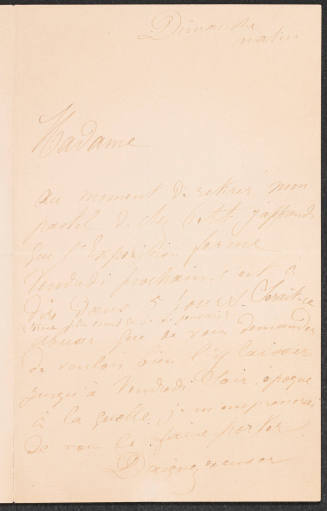 Dimanche
matin
Madame
au moment de retirer mon
pastel de chez j'apprends
que l'Exposition ferme
Vendredi prochain, c'est à
dire dans 5 jours. Serait-ce
abuser que de vous demander
de vouloir bien l'y laisser
jusqu'à Vendredi soir, époque
à la quelle je m'empresserai
de vous le faire porter.
Daignez